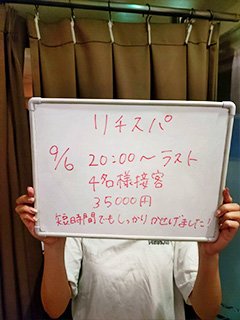 リチスパ
9/6 20:00〜ラスト
4名様接客
35000円
短時間でもしっかりかせげました!